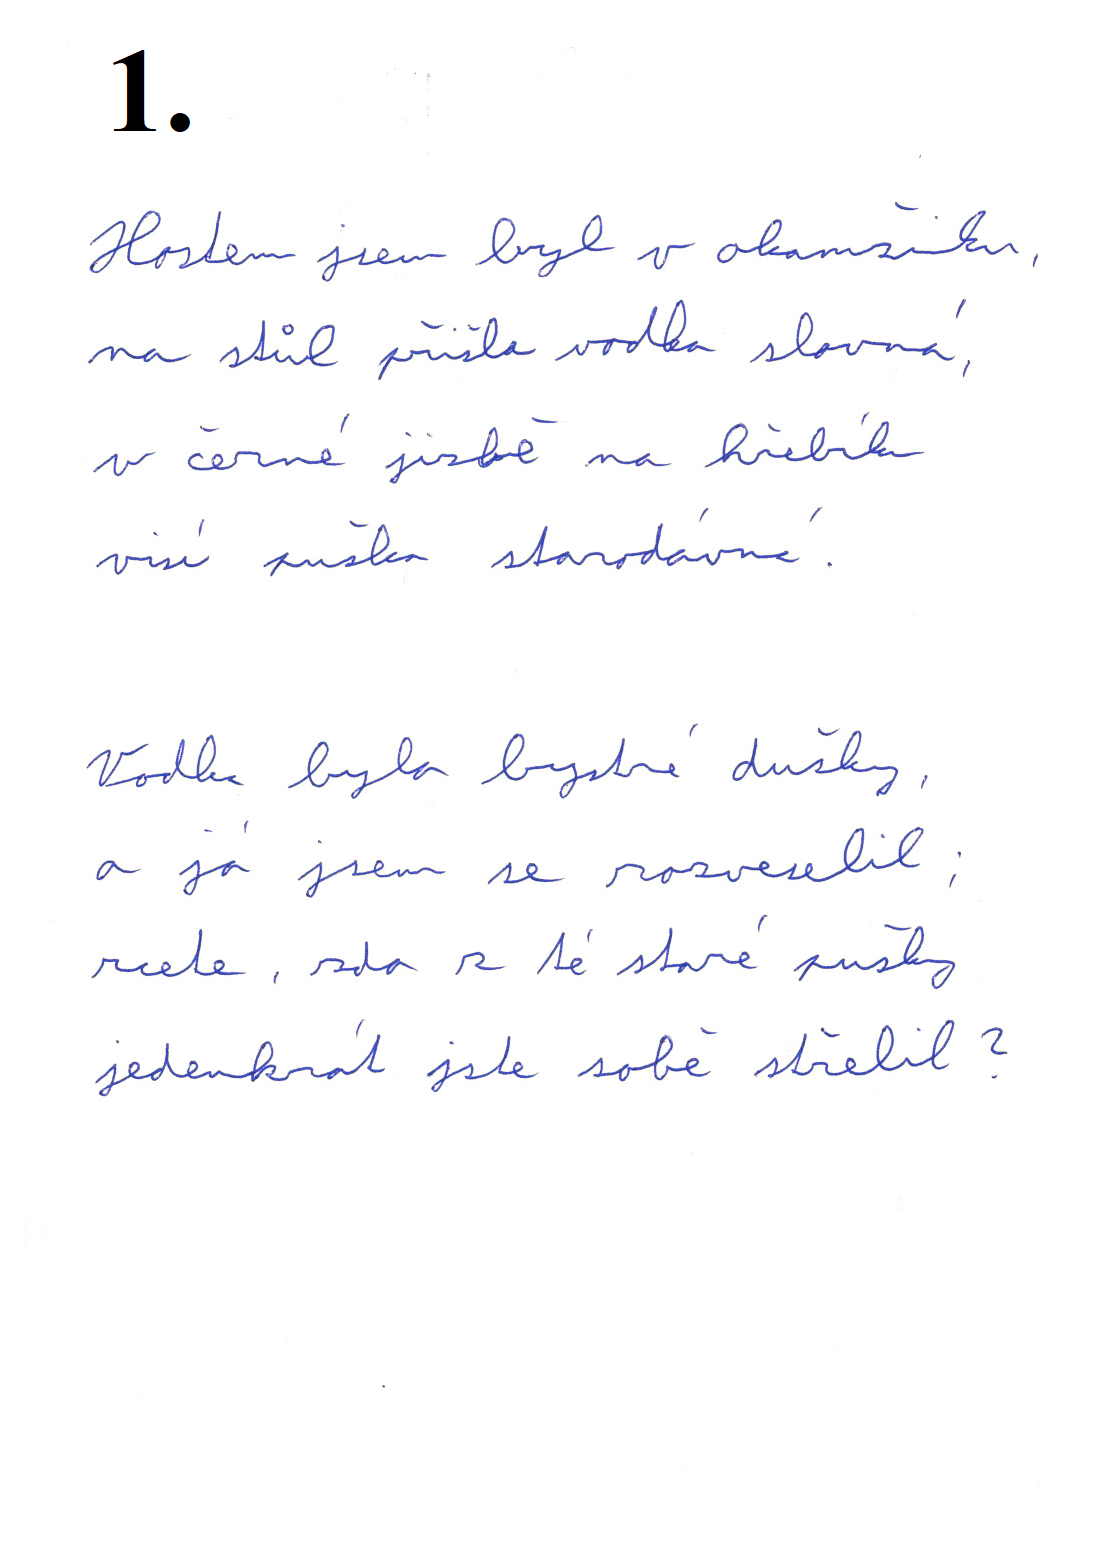 1.
Hostem jsem byl v okamžiku,
na stůl přišla vodka slavná,
v černé jizbě na hřebíku
visí puška starodávná.
Vodka byla bystré dušky,
a já jsem se rozveselil;
rcete, zda z té staré pušky
jedenkrát jste sobě střelil?